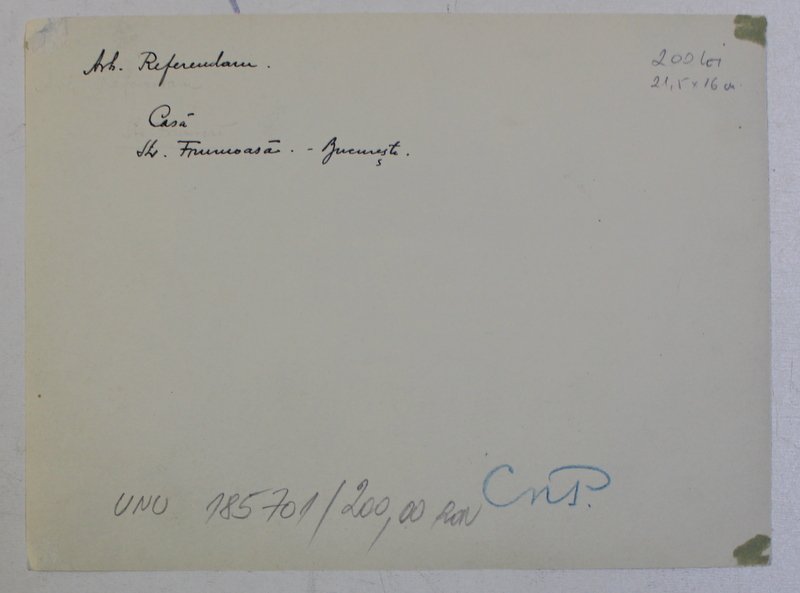 Arh. Referendaru.
200 lei
21,5 x 16 cm
Casă
Str. Frumoasă. - București.
UNU 185701/200,00 RON